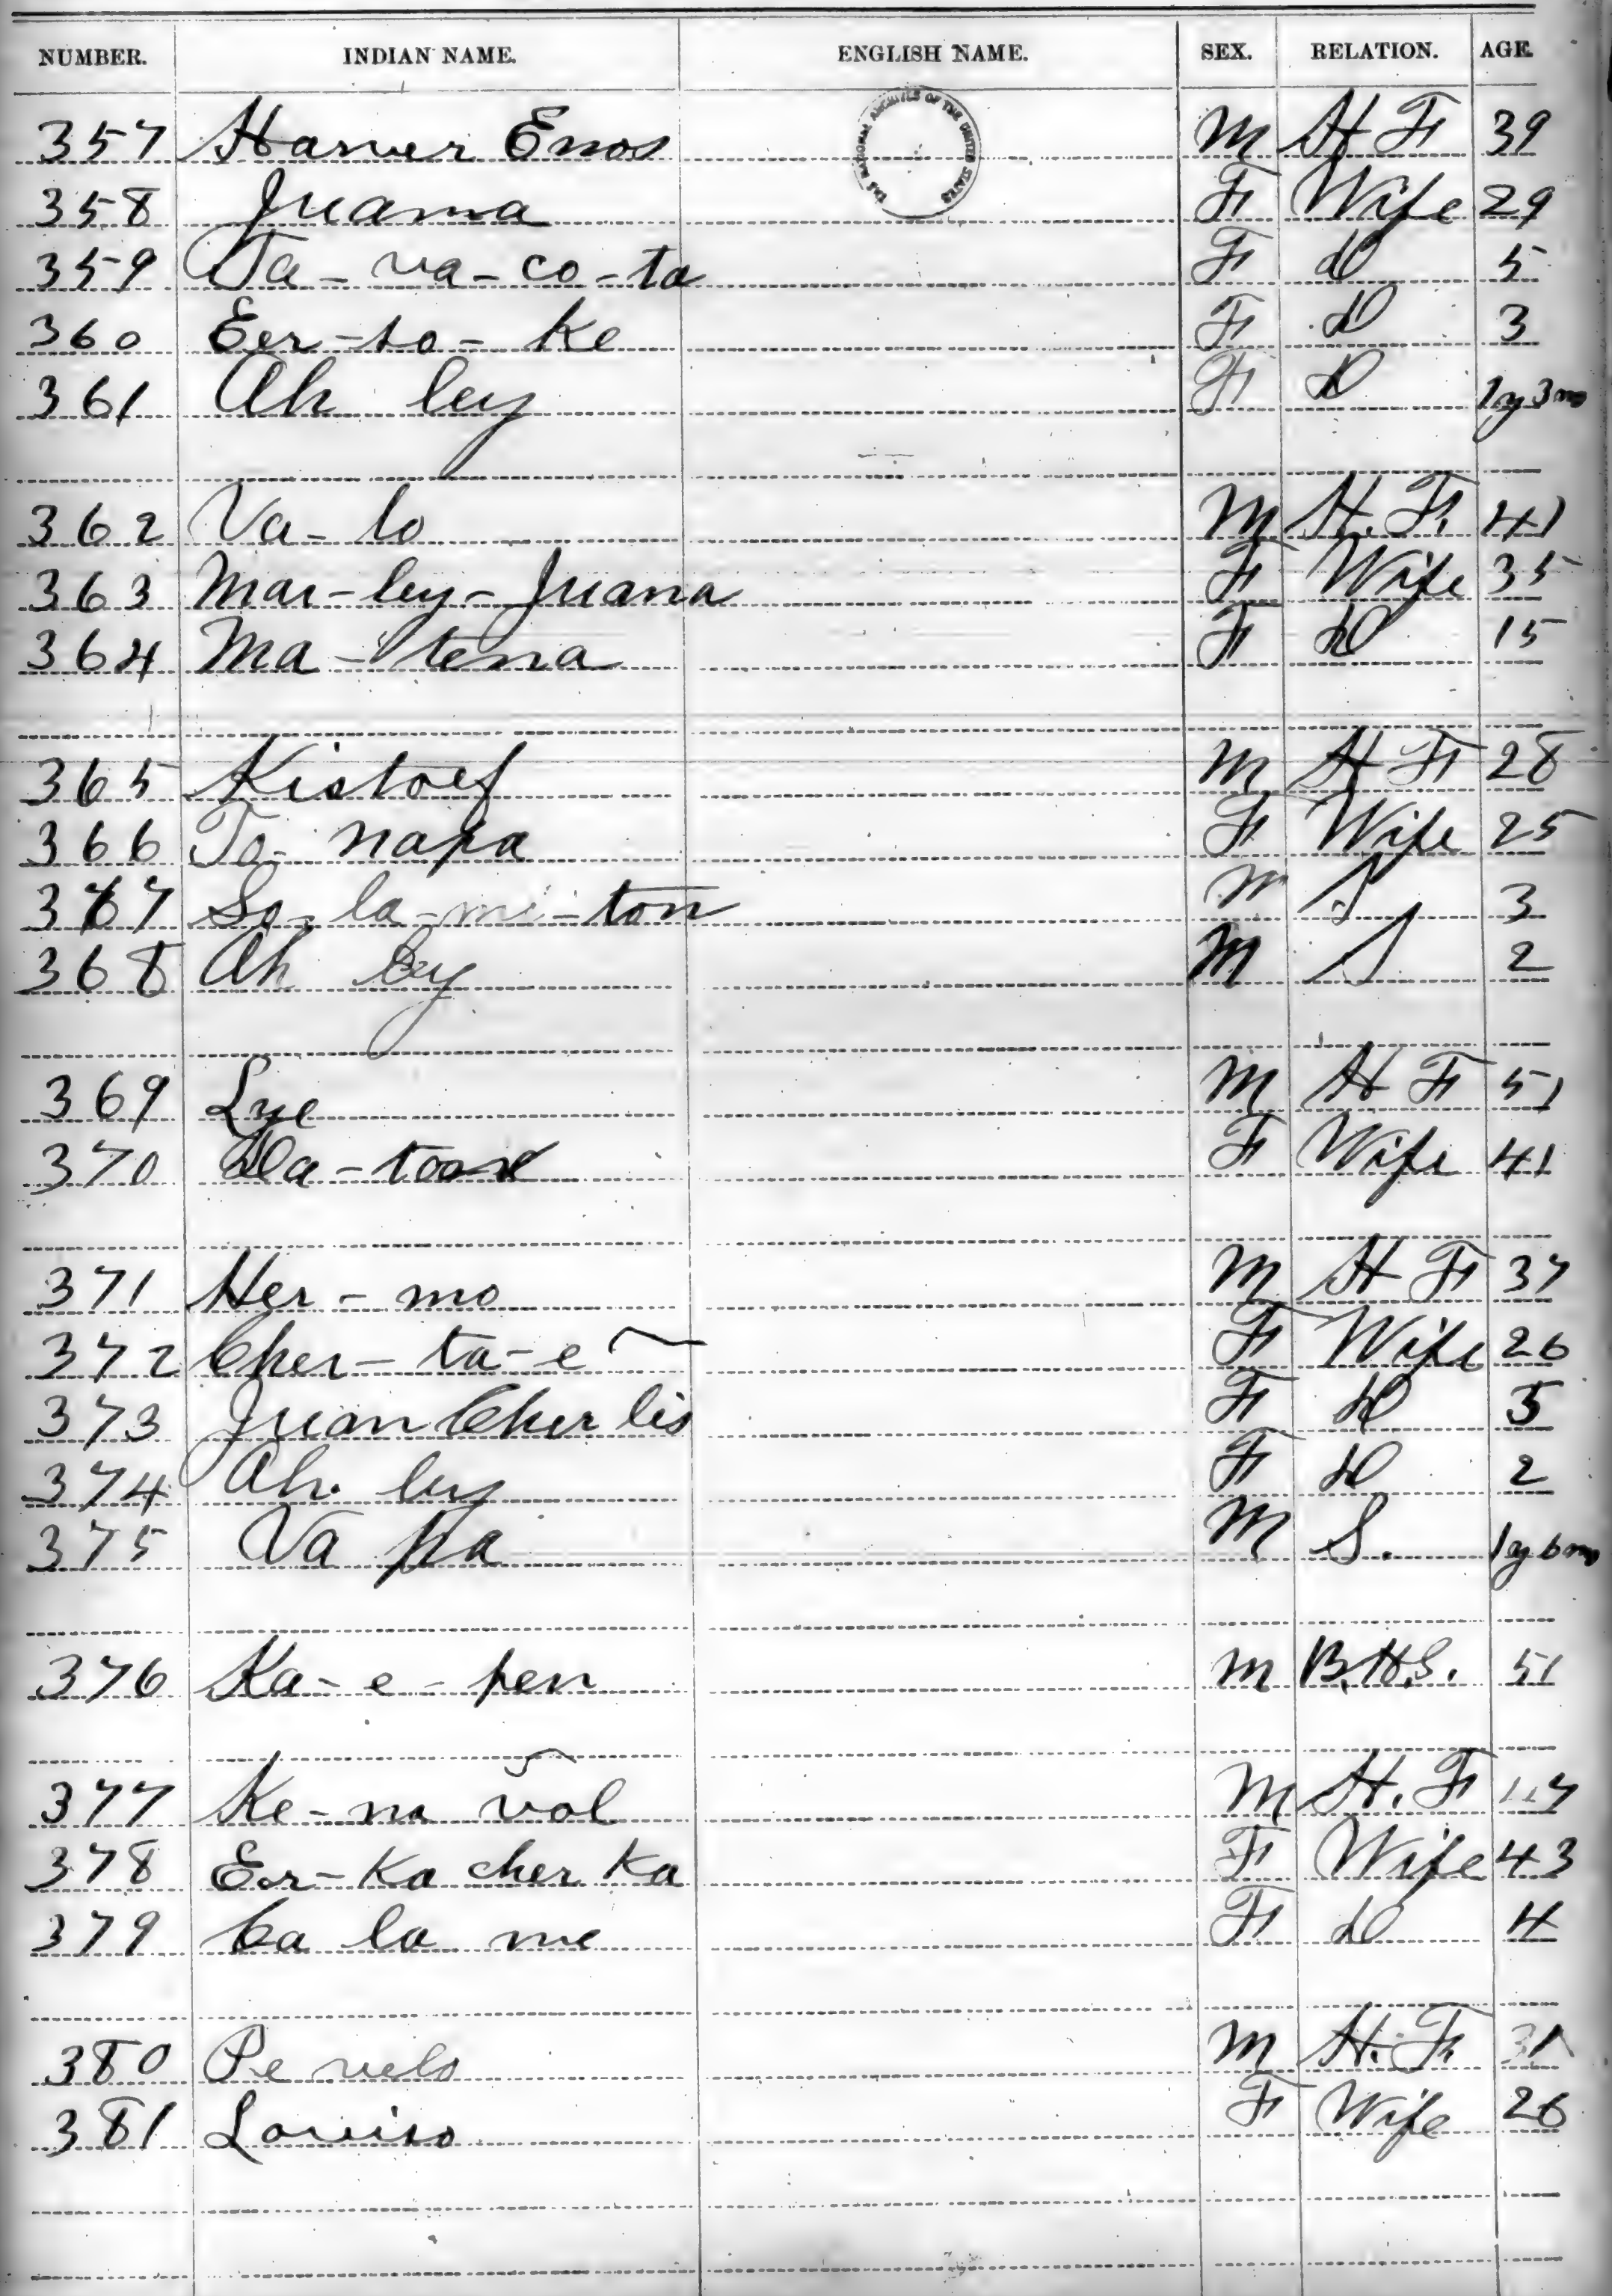 NUMBER. INDIAN NAME. ENGLISH NAME. SEX. RELATION. AGE.
THE NATIONAL ARCHIVES OF THE UNITED STATES
357 Harver Enos M H F 39
358 Juana F Wife 29
359 Ta-va-co-ta F D 5
360 Eer-so-ke F D 3
361 Ah ley F D 1y 3m
362 Va-lo M H. F. 41
363 Mar-ley-Juana F Wife 35
364 Ma-tena F D 15
365 Kistoef M H F 28
366 To-napa F Wife 25
367 So-la-mi-ton M S 3
368 Ah ley M S 2
369 Lye M H F 51
370 Da-toox F Wife 41
371 Her-mo M H F 37
372 Cher-ta-e F Wife 26
373 Juan Cher lis F D 5
374 Ah. ley F D 2
375 Va pa M S. 1y 6m
376 Ka-e-pen M B.H.S. 51
377 Ke-na vol M H. F
378 Er-Ka cher Ka F Wife 43
379 Ca la me F D 4
380 Pe velo M H. F. 31
381 Louiso F Wife 26